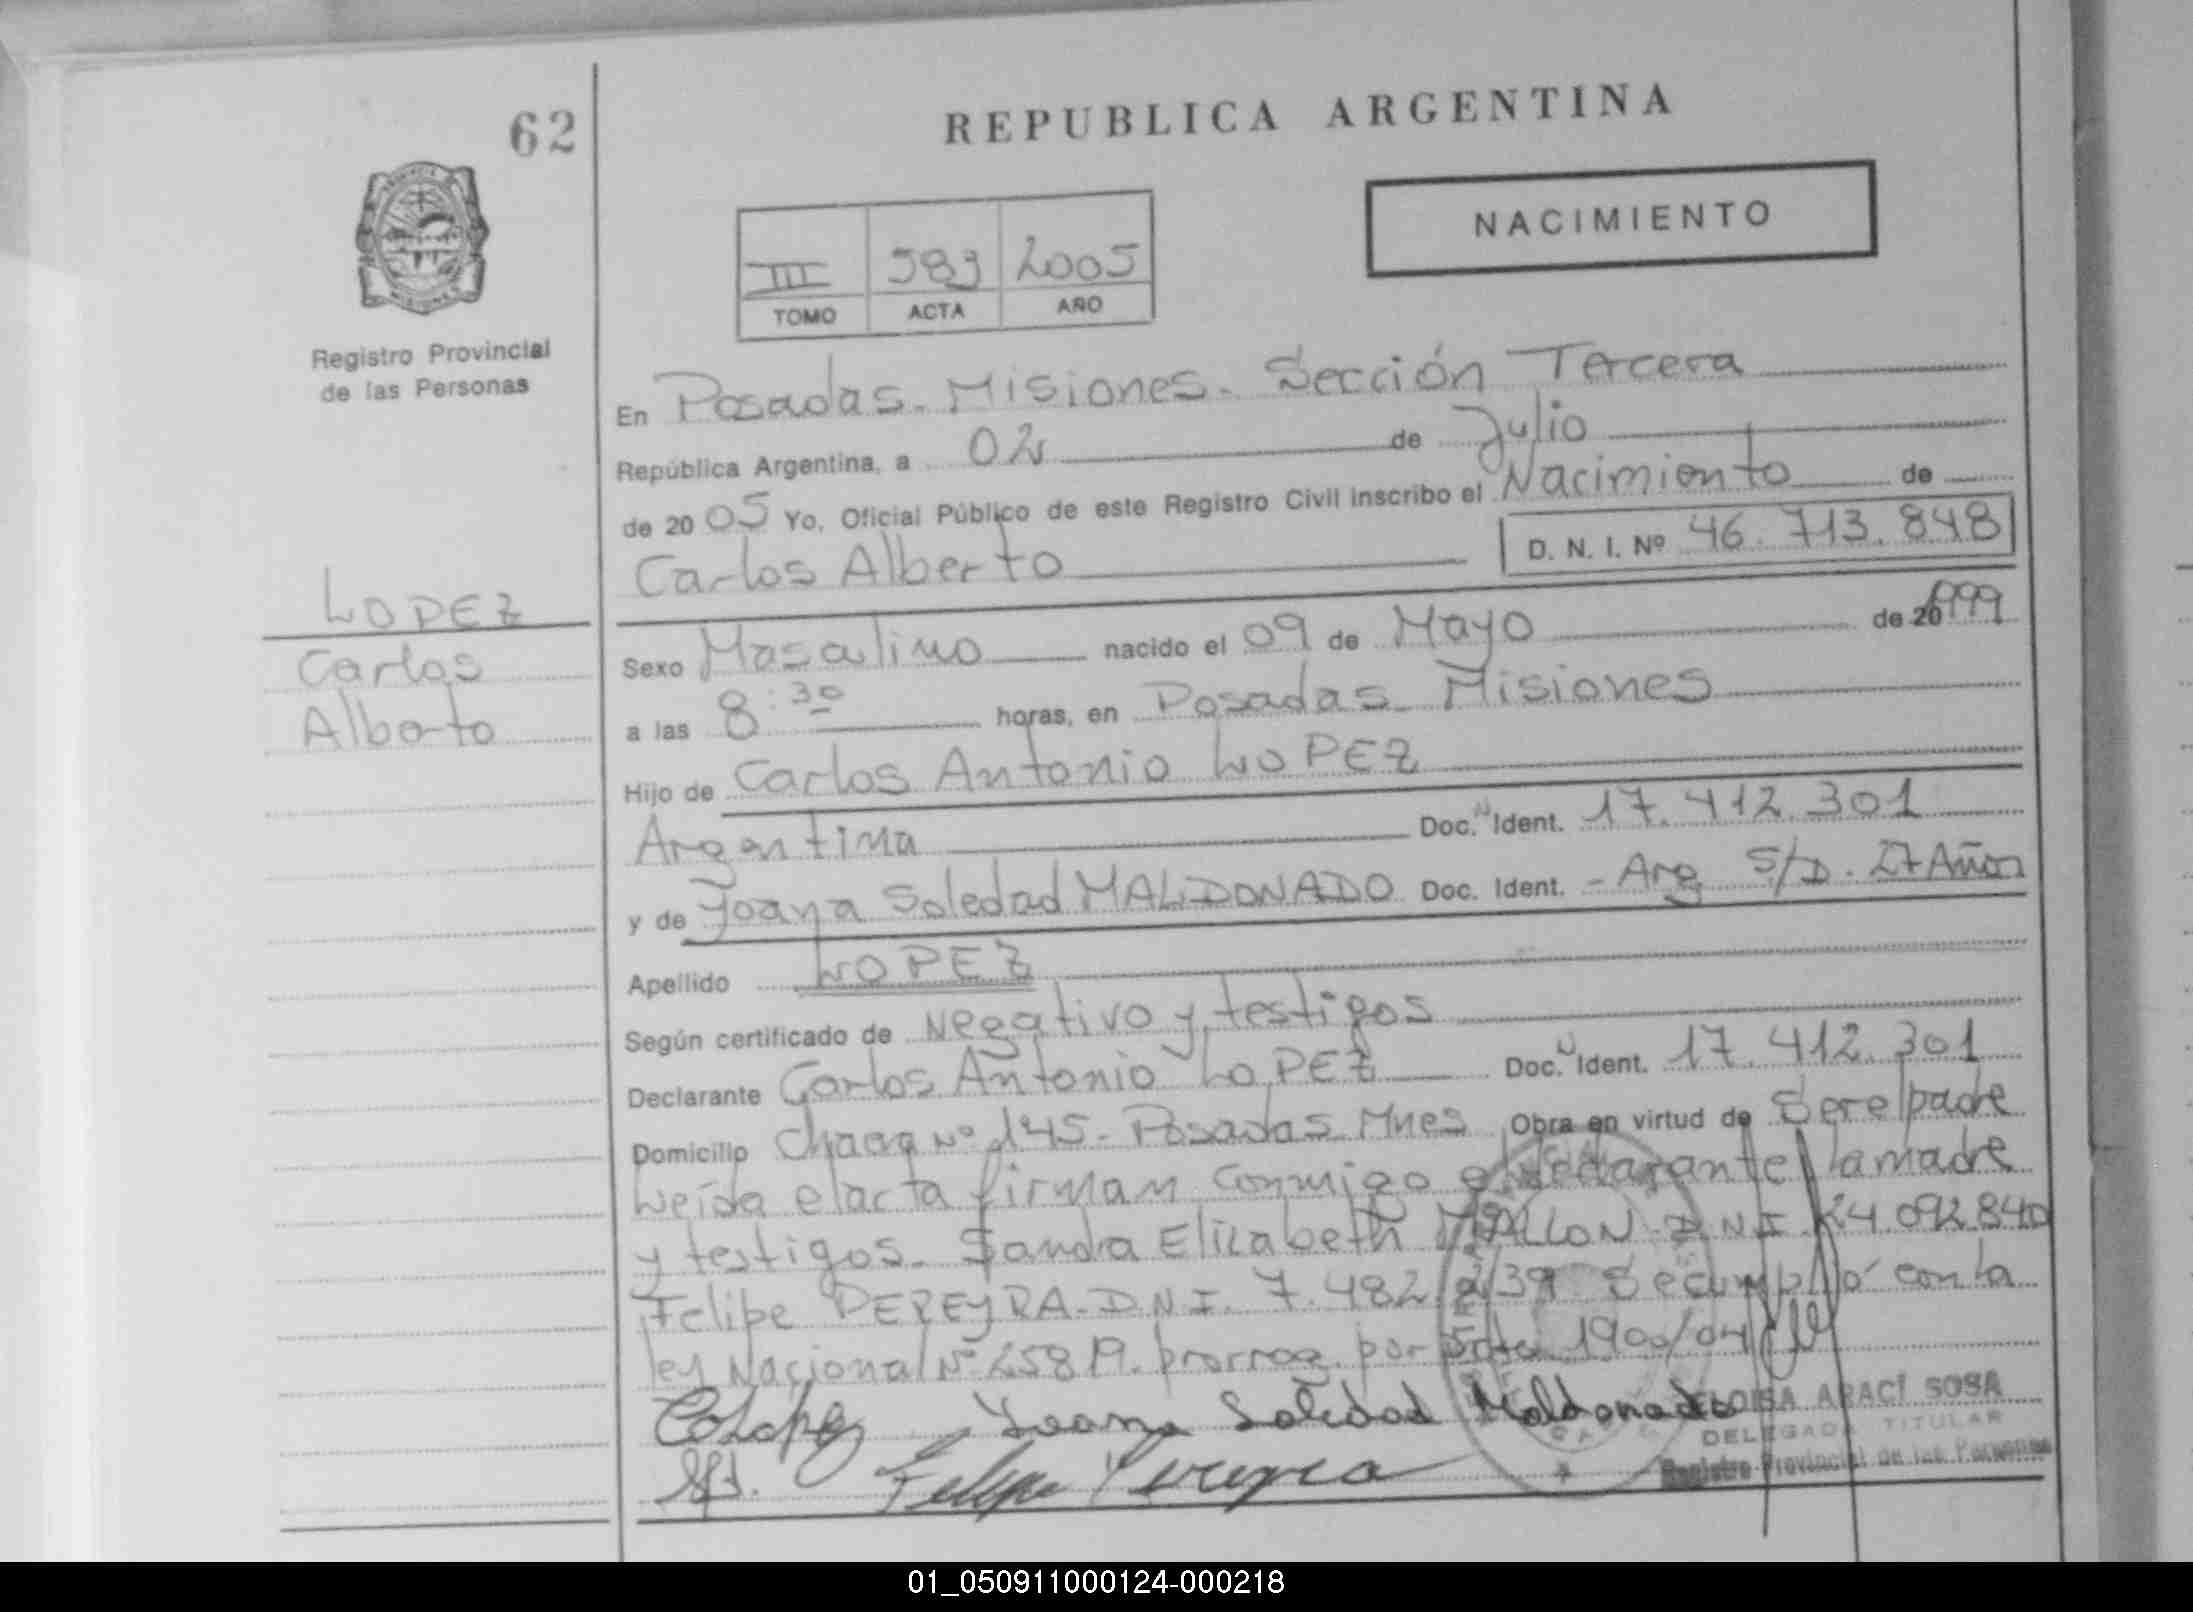 62
REPUBLICA ARGENTINA
NACIMIENTO
III 583 2005
TOMO ACTA AÑO
Registro Provincial
de las Personas
LOPEZ
Carlos
Alberto
En Posadas - Misiones - Sección Tercera
República Argentina, a 02 de Julio
de 2005 Yo, Oficial Público de este Registro Civil inscribo el Nacimiento de
Carlos Alberto D. N. I. Nº 46.713.848
Sexo Masculino nacido el 09 de Mayo de 20 1999
a las 8:30 horas, en Posadas - Misiones
Hijo de Carlos Antonio LOPEZ
Argentina Doc. N Ident. 17.412.301
y de Yoana Soledad MALDONADO Doc. Ident. - Arg S/D. 27 Años
Apellido LOPEZ
Según certificado de Negativo y testigos
Declarante Carlos Antonio LOPEZ Doc. N Ident. 17.412.301
Domicilio Chacra Nº 145 - Posadas Mnes Obra en virtud de Ser el padre
Leída el acta firman conmigo el declarante la madre
y testigos - Sandra Elizabeth D.N.I. 24.092.840
Felipe PEREYRA - D.N.I. 7.482.239 Se cumplió con la
ley Nacional Nº 25819. prorrog. por Dto 1900/04
Yoana Soledad Maldonado
Felipe Pereyra
ELOISA ARACÍ SOSA
DELEGADA TITULAR
Registro Provincial de las Personas
01_050911000124-000218